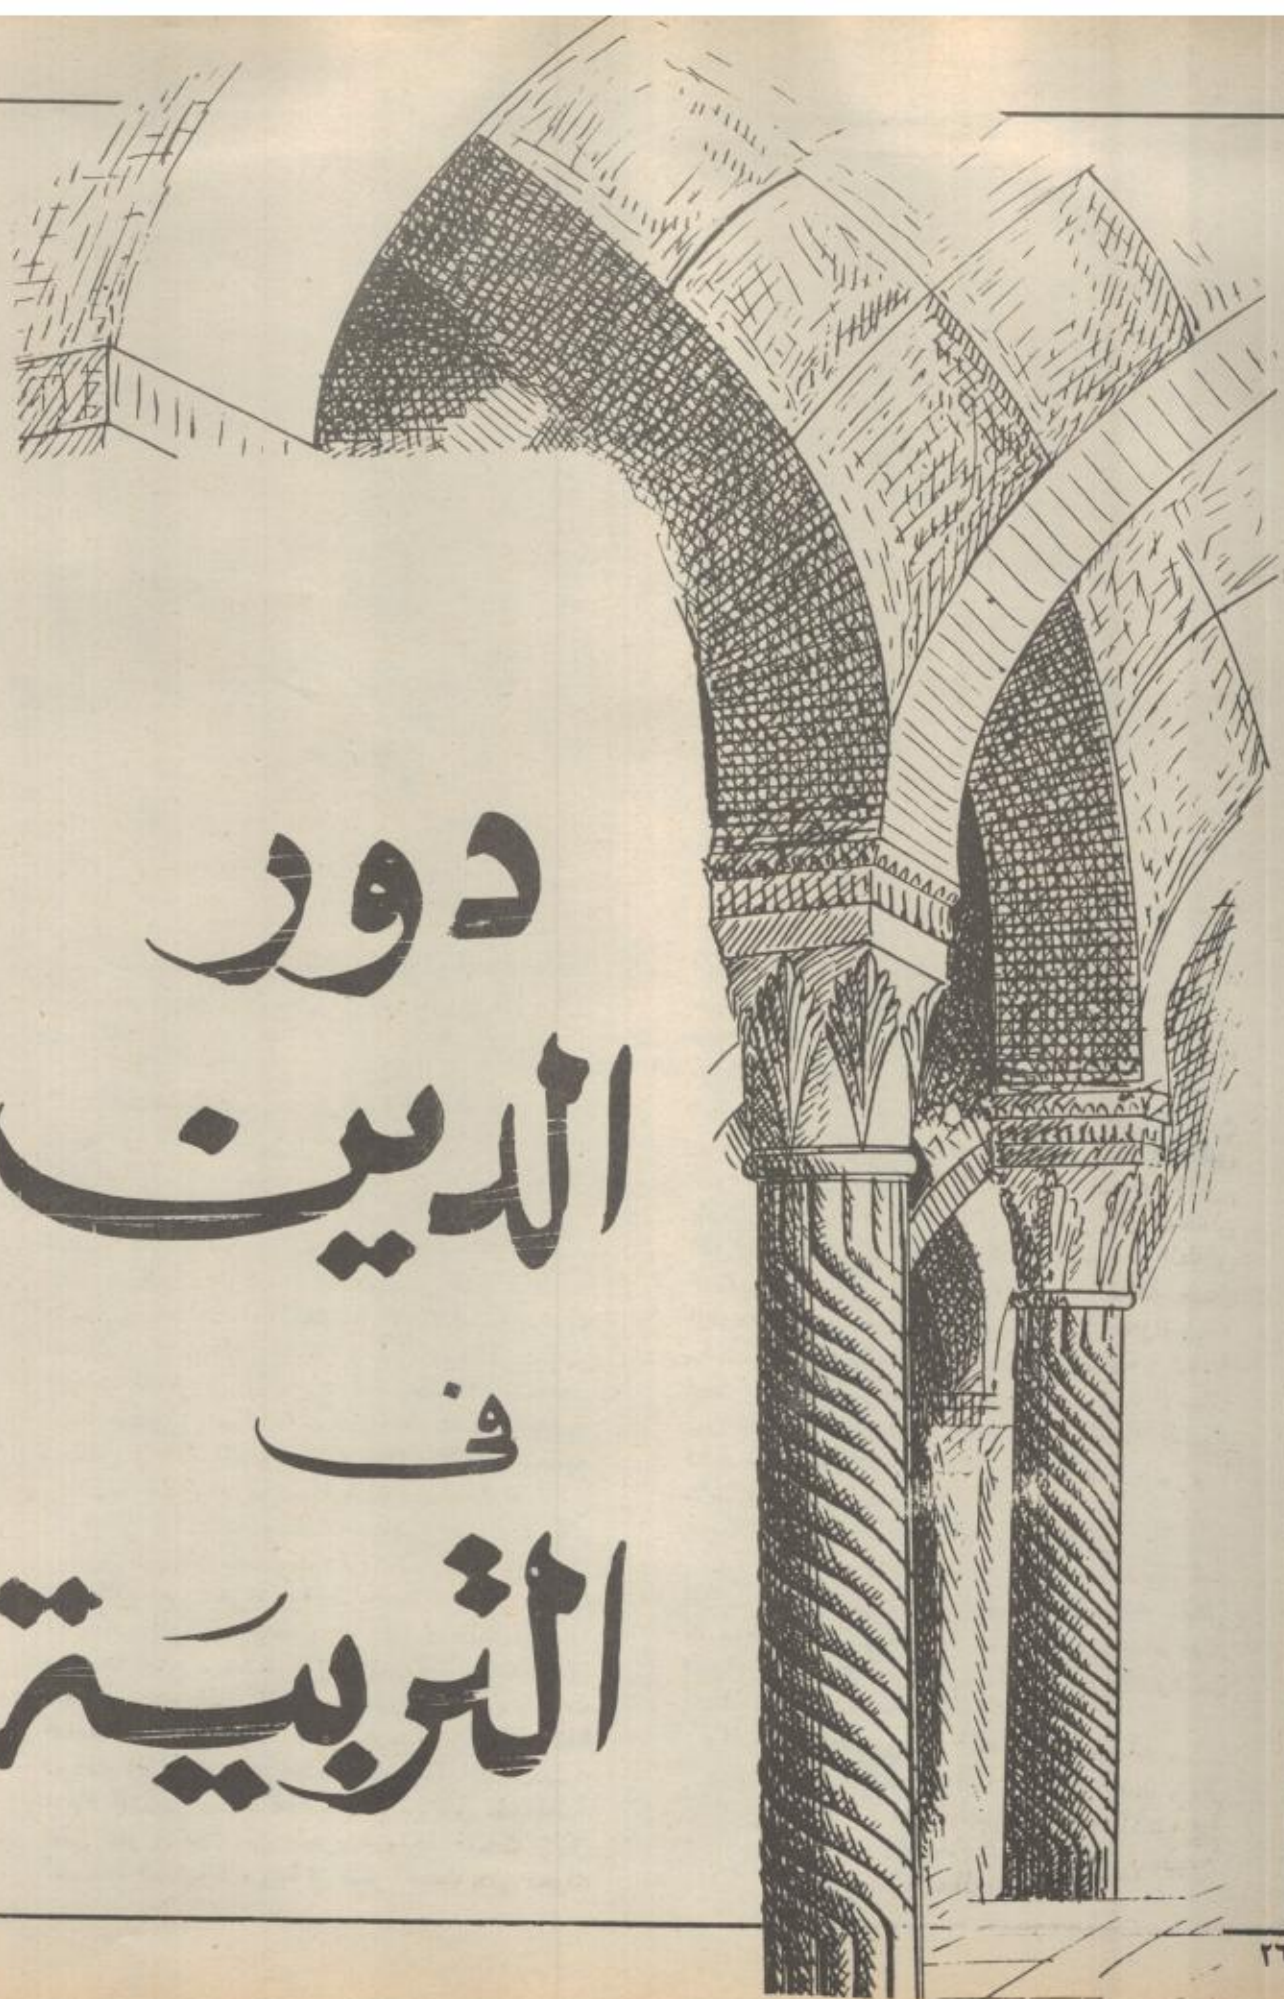 دور
الدين
فى
التربيَة
٢٦